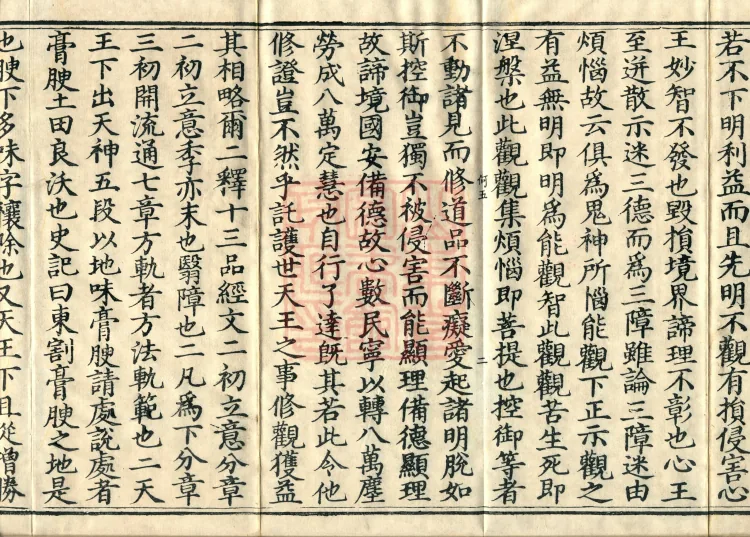 若不下明利益而且先明不觀有損侵害心
王妙智不發也毀損境界諦理不彰也心王
至迸散示迷三德而為三障雖論三障迷由
煩惱故云俱為鬼神所惱能觀下正示觀之
有益無明即明為能觀智此觀觀苦生死即
涅槃也此觀觀集煩惱即菩提也控御等者
何五
二
不動諸見而修道品不斷癡愛起諸明脫如
斯控御豈獨不被侵害而能顯理備德顯理
故諦境國安備德故心數民寧以轉八萬塵
勞成八萬定慧也自行了達既其若此令他
修證豈不然乎託護世天王之事修觀獲益
其相略爾二釋十三品經文二初立意分章
二初立意季亦末也翳障也二凡為下分章
三初開流通七章方軌者方法軌範也二天
王下出天神五段以地味膏腴請處說處者
膏腴土田良沃也史記曰東割膏腴之地是
也腴下多味字穰除也又天王下且從僧勝